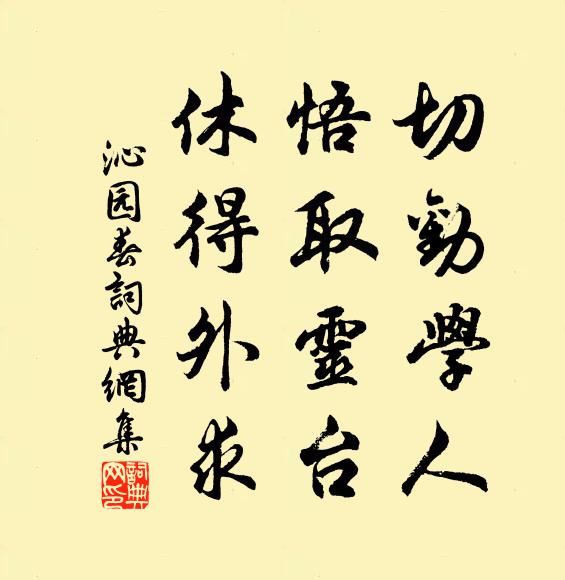 切勸學人
悟取靈台
休得外求
沁园春詞典網集
詞典网印